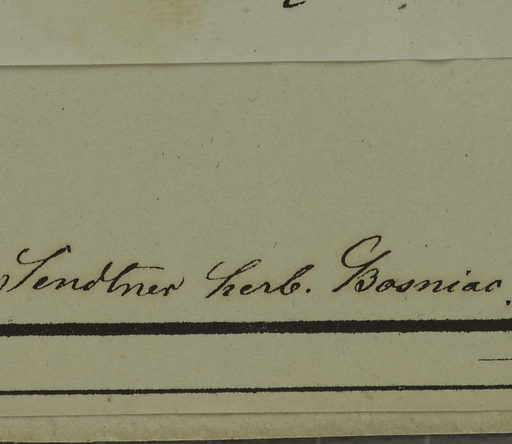 Sendtner herb. Bosniac.